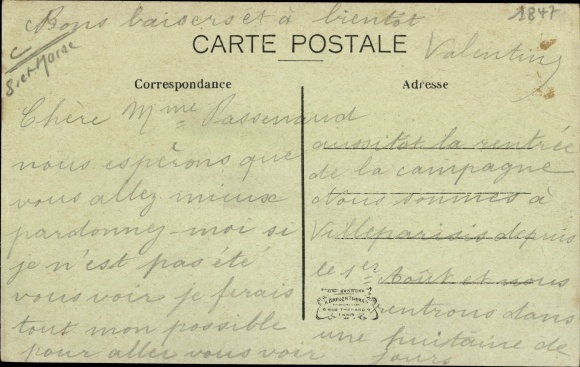 Bons baisers et à bientôt
1847
Valentin
S. et Marne
CARTE POSTALE
Correspondance
Adresse
Chère Mme Passenaud
nous espérons que
vous allez mieux
pardonnez-moi si
je n'est pas été
vous voir je ferais
tout mon possible
pour aller vous voir
aussitot la rentrée
de la campagne
Nous sommes à
Villeparisis depuis
le 1er Août et nous
rentrons dans
une huitaine de
jours